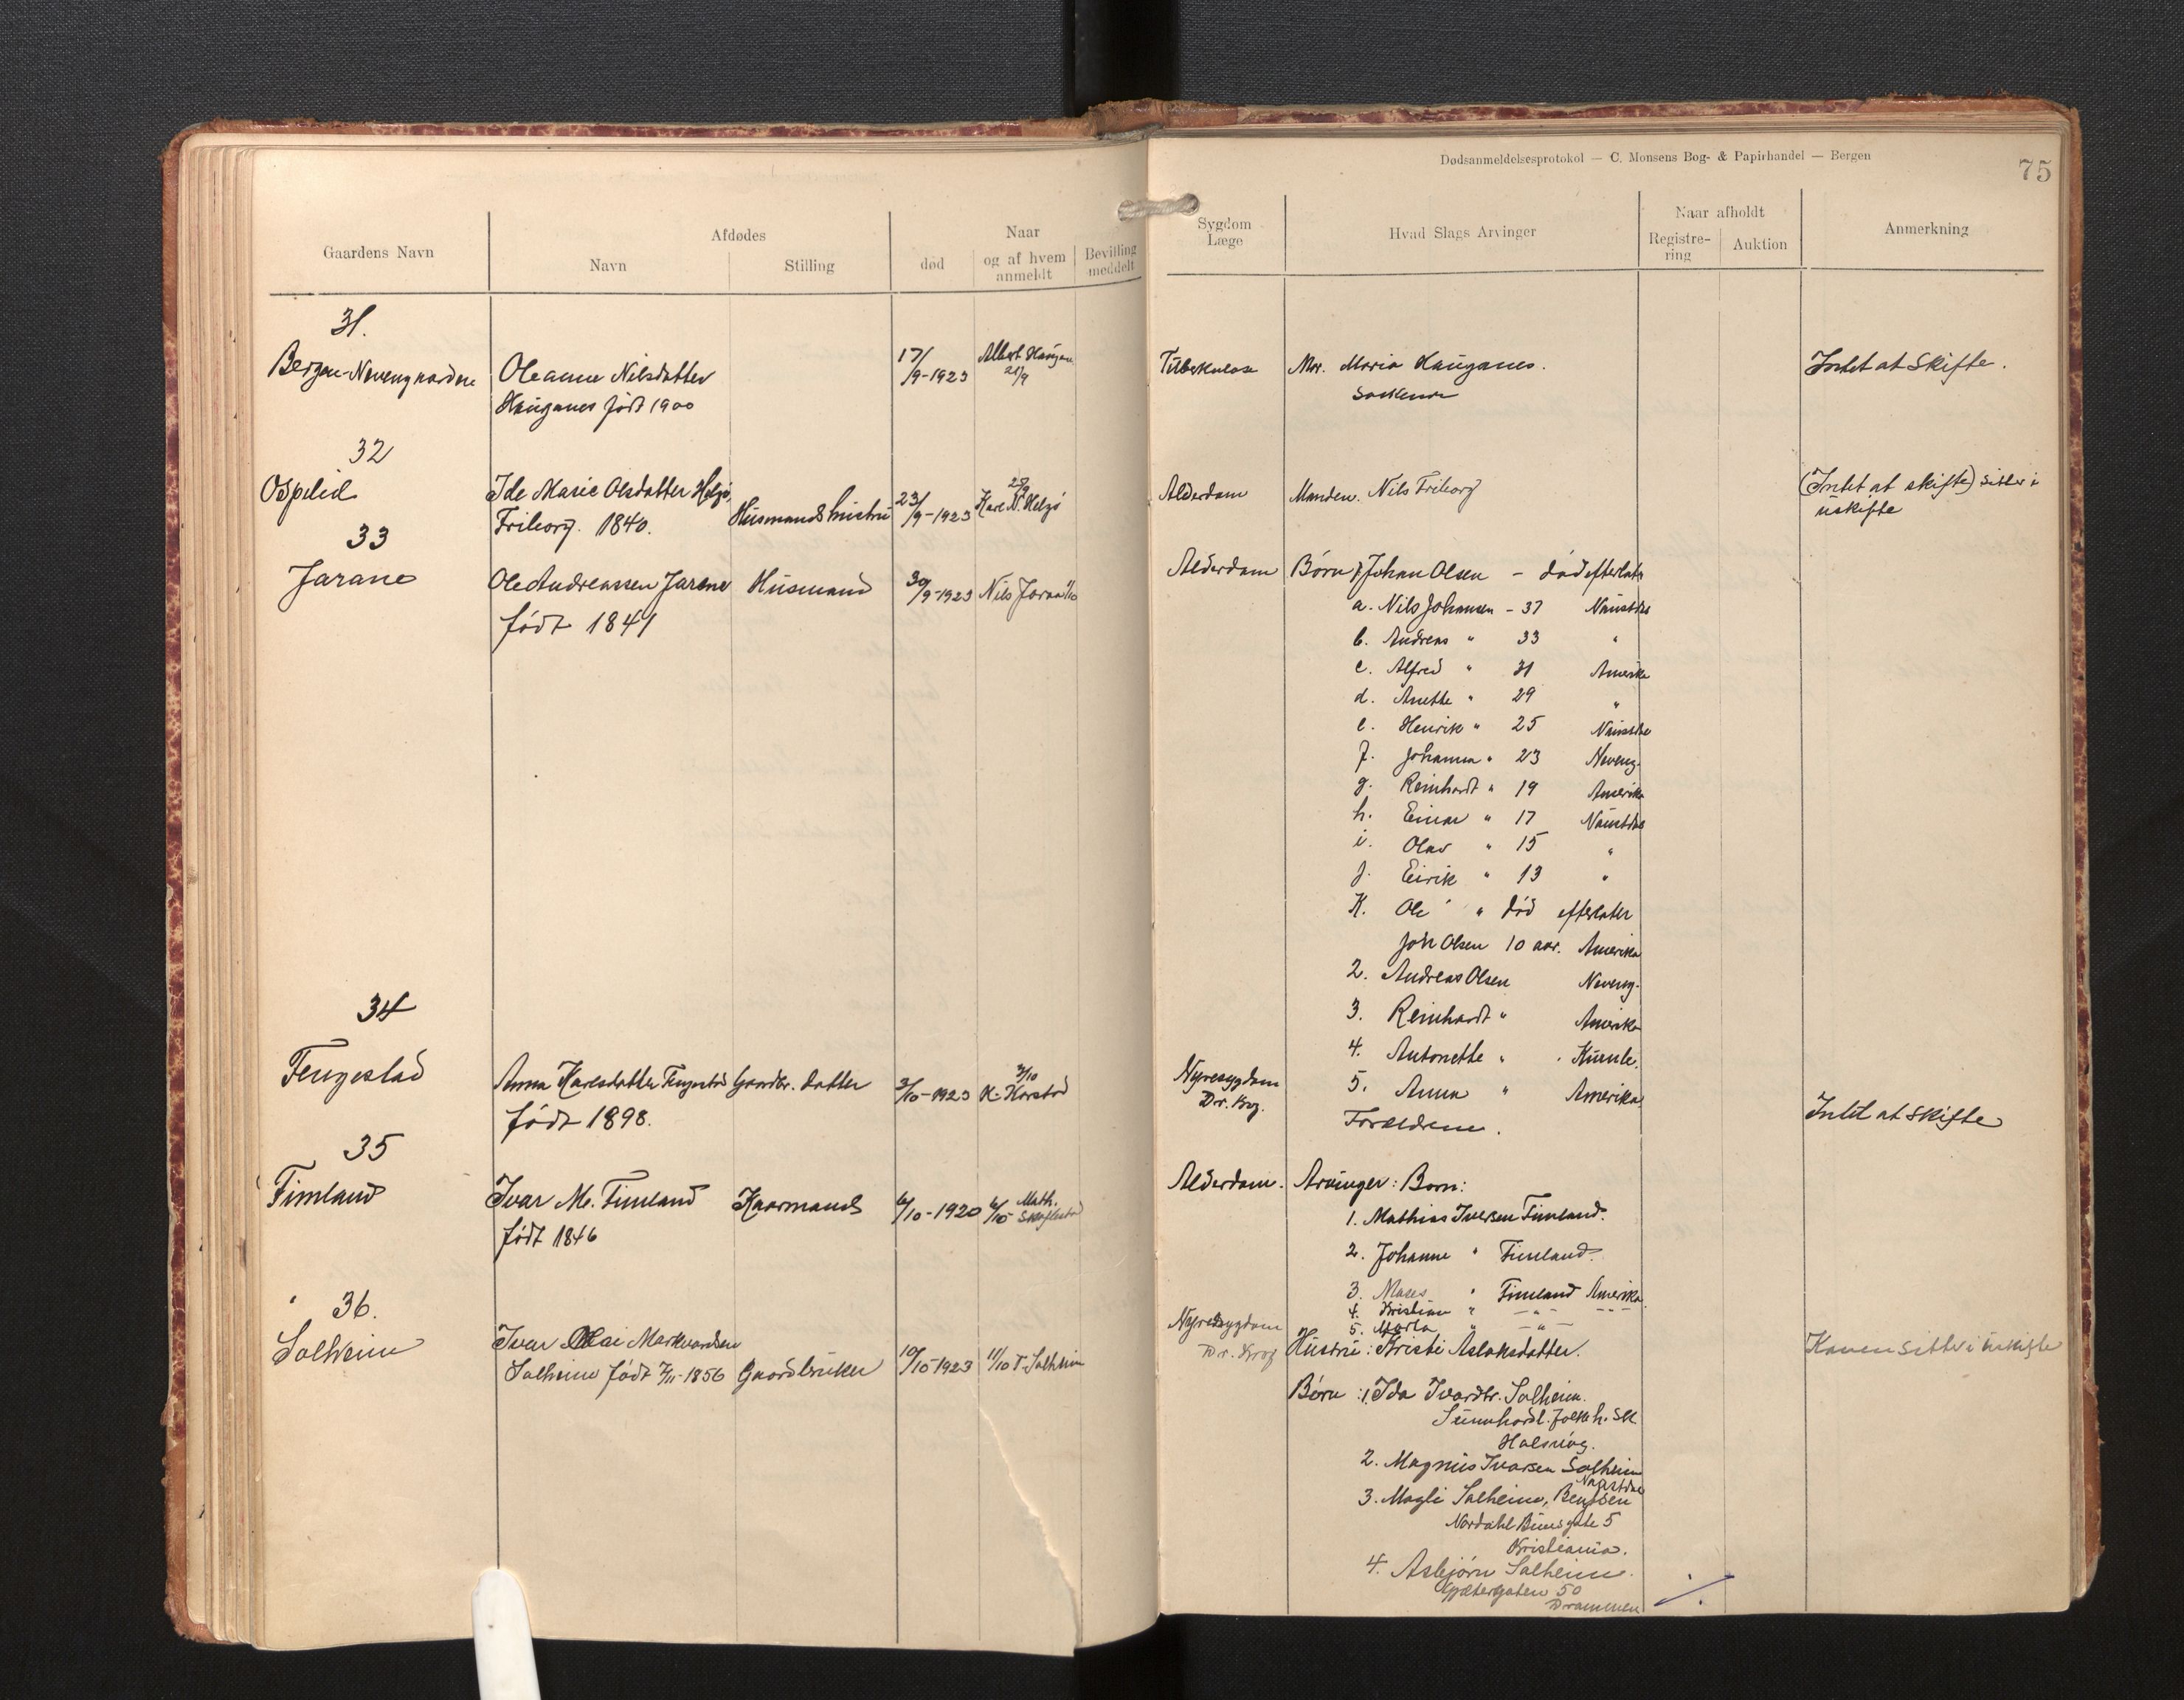 Dødsanmeldelsesprotokol — C. Monsens Bog- & Papirhandel — Bergen
75
Gaardens Navn
Afdødes
Navn
Stilling
Naar
død
og af hvem anmeldt
Bevilling meddelt
Sygdom
Læge
Hvad Slags Arvinger
Naar afholdt
Registrering
Auktion
Anmerkning
31.
Bergen-
Oleanne Nilsdatter
Hauganes født 1900
17/9-1923
Albert Haugen
21/9
Tuberkulose
Mor. Maria Hauganes.
Søskende
Intet at Skifte.
32
Ospelid
Ide Marie Olsdatter Helgø,
Friborg. 1840.
Husmandshustru
23/9-1923
28/9
Karl N. Helgø
Alderdom
Manden. Nils Friborg
(Intet at skifte) Sitter i
uskifte
33
Jarane
Ole Andreassen Jarane
født 1841
Husmand
30/9-1923
Nils Jaran 1/10
Alderdom
Børn 1 Johan Olsen - død efterlater
a. Nils Johansen - 37 Naustdal
b. Andreas " 33 "
c. Alfred " 31 Amerika
d. Anette " 29 "
e. Henrik " 25 Naustdal
f. Johanna " 23 Neveng.
g. Reinhardt " 19 Amerika
h. Einar " 17 Naustdal
i. Olav " 15 "
j. Eirik " 13 "
K. Ole " død efterlater
Joh Olsen 10 aar. Amerika
2. Andreas Olsen Neveng.
3. Reinhardt " Amerika
4. Antonette "
5. Anna " Amerika
34
Fengestad
Anna Karlsdatter Fengestad
født 1898.
Gaardbr. datter
3/10-1923
3/10
K. Horstad
Nyresygdom
Dr. Krog.
Forældrene.
Intet at skifte
35
Fimland
Ivar M. Fimland
født 1846
Kaarmand
6/10-1920
6/10 Math.
Alderdom.
Arvinger: Born:
1. Mathias Iversen Fimland.
2. Johanne " Fimland.
3. Moses " Fimland Amerika
4. Kristian " —"— —"—
5. Marta " —"—
36.
Solheim
Ivar Olai Markvardsen
Solheim født 7/11-1856
Gaardbruker
10/10-1923
11/10 T. Solheim
Nyresygdom
Dr. Krog
Hustru: Kristi Aslaksdatter.
Børn: 1. Ida Ivardtr. Solheim.
Sunnhordl. folkeh. sk
Halsnøy.
2. Magnus Ivarsen Solheim
Naustdal
3. Magli Solheim, Bentsen
Nordahl Bruns gate 5
Kristiania.
4. Asbjørn Solheim.
Gjætergaten 50
Drammen
Konen sitter i uskifte